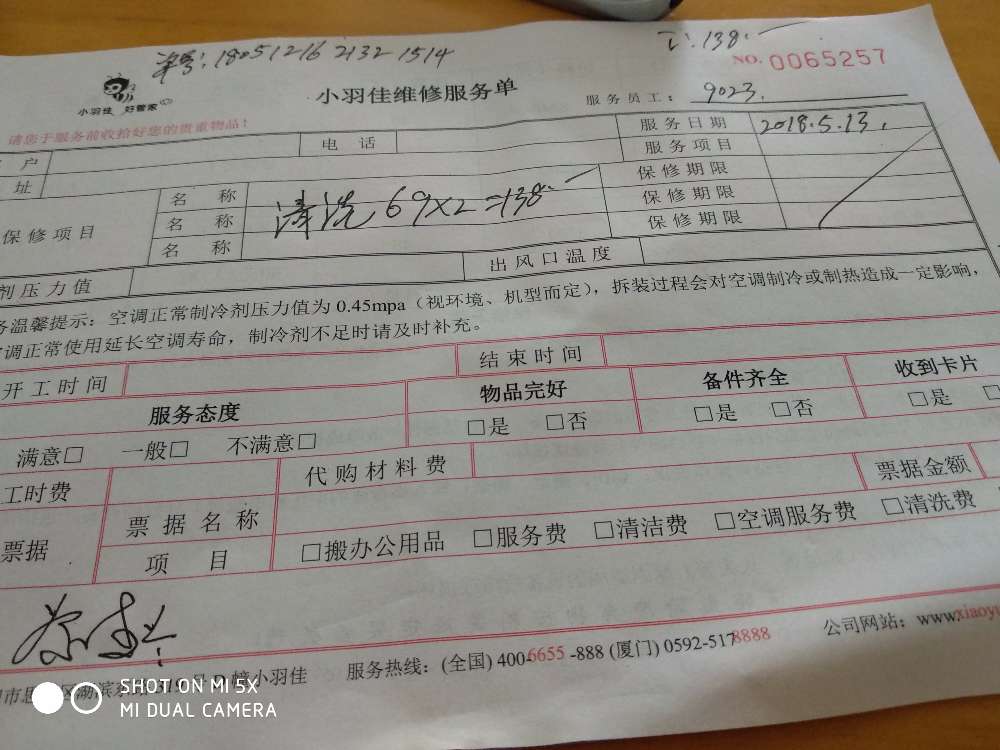 单号: 18051216 2132 1514
138.
NO. 0065257
小羽佳 好管家
小羽佳维修服务单
服务员工: 9023.
请您于服务前收拾好您的贵重物品!
户 电 话 服务日期 2018.5.13.
址 服务项目
保修项目 名 称 保修期限
名 称 清洗 69×2=138.- 保修期限
名 称 保修期限
剂压力值 出风口温度
务温馨提示: 空调正常制冷剂压力值为 0.45mpa (视环境、机型而定), 拆装过程会对空调制冷或制热造成一定影响,
调正常使用延长空调寿命, 制冷剂不足时请及时补充。
开工时间 结束时间
服务态度 物品完好 备件齐全 收到卡片
满意□ 一般□ 不满意□ □是 □否 □是 □否 □是 □
工时费 代购材料费 票据金额
票据 票据名称
项 目 □搬办公用品 □服务费 □清洁费 □空调服务费 □清洗费
幢小羽佳 服务热线: (全国) 400-6655-888 (厦门) 0592-5178888 公司网站: www.xiaoyu
SHOT ON MI 5X
MI DUAL CAMERA